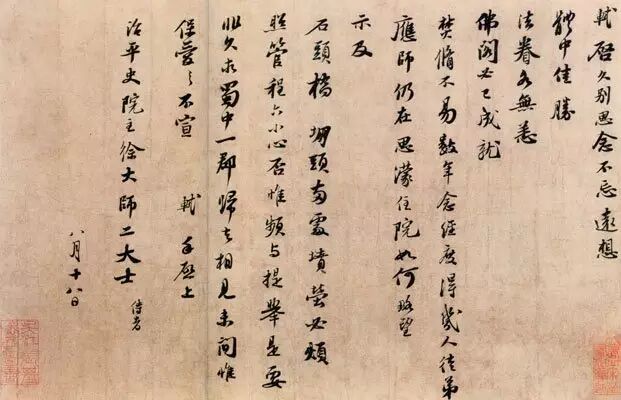 軾啓久别思念不忘遠想
體中佳勝
法眷各無恙
佛閣必已成就
焚脩不易數年念經度得幾人徒弟
應師仍在思濛住院如何略望
示及
石頭橋堋頭兩處墳塋必煩
照管程六小心否惟頻與提舉是要
非久求蜀中一郡歸去相見未間惟
保愛之不宣 軾手啓上
治平史院主徐大師二大士侍者
八月十八日